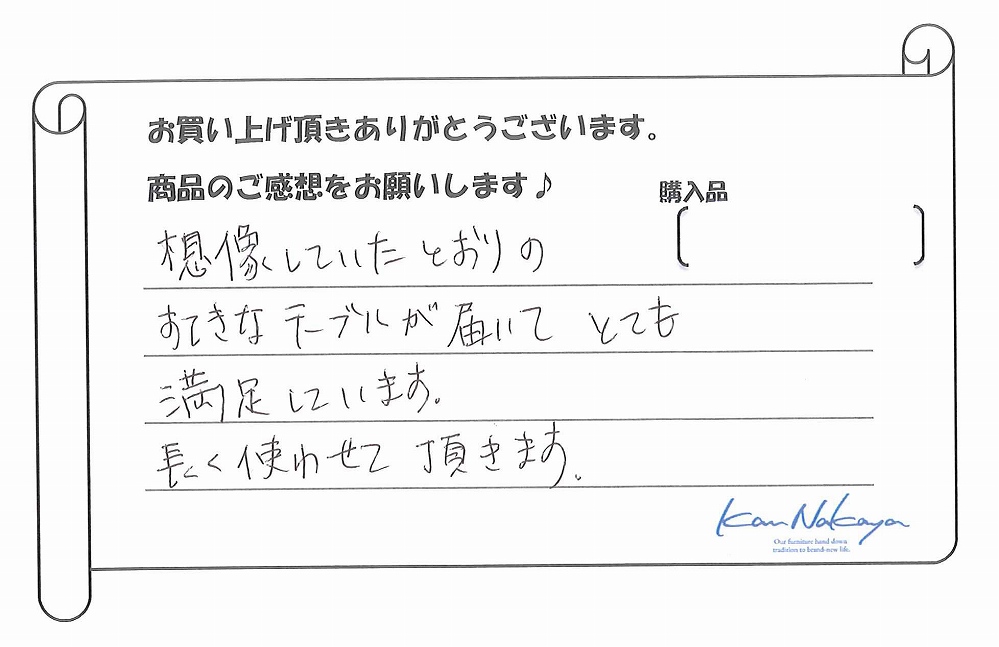 お買い上げ頂きありがとうございます。
商品のご感想をお願いします♪
購入品
想像していたとおりの
すてきなテーブルが届いて とても
満足しています。
長く使わせて 頂きます。
Kan Nakaya
Our furniture hand down
tradition to brand-new life.